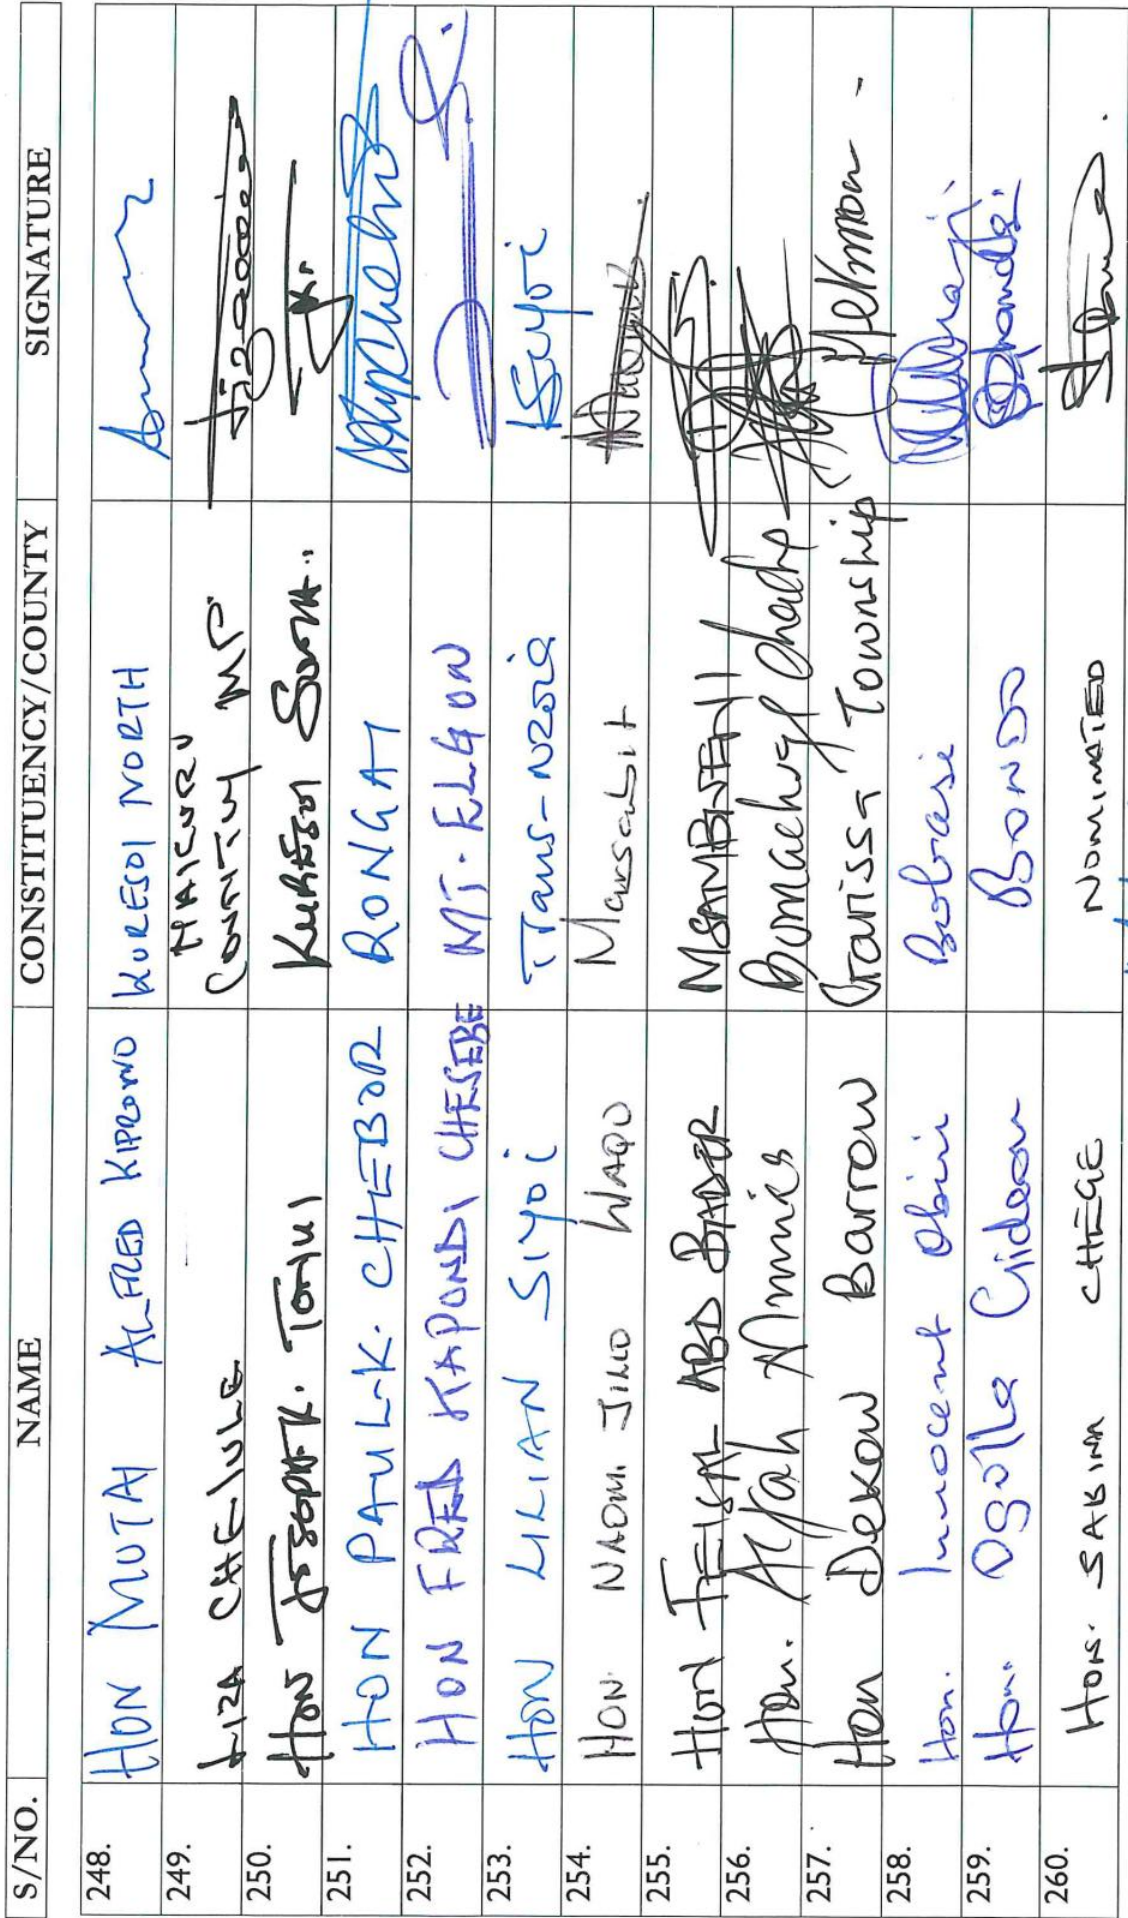 S/NO. NAME CONSTITUENCY/COUNTY SIGNATURE
248. HON MUTAI ALFRED KIPRONO KURESOI NORTH
249. LIZA CHELULE NAKURU
COUNTY MP
250. HON JOSEPH K. TONUI KURESOI SOUTH
251. HON PAUL K. CHEBOR RONGAI
252. HON FRED KAPONDI CHESEBE MT. ELGON
253. HON LILIAN SIYOI Trans-Nzoia Siyoi
254. HON. NAOMI JILLO WAQO Marsabit
255. HON FEISAL ABD BADER MSAMBWENI
256. Hon. Alfah Miruka Bomachoge Chache
257. Hon Dekow Barrow Garissa Township
258. Hon. Innocent Obiri Bobasi
259. Hon. Ogolla Gideon BONDO
260. HON. SABINA CHEGE NOMINATED